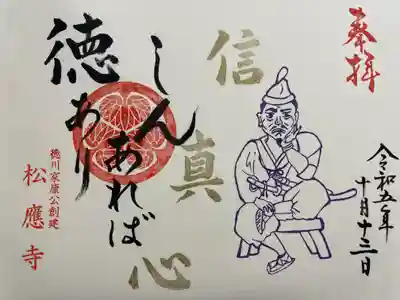 奉拝
令和五年
十月十三日
信
真
心
しんあれば
徳あり
徳川家康公創建
松應寺